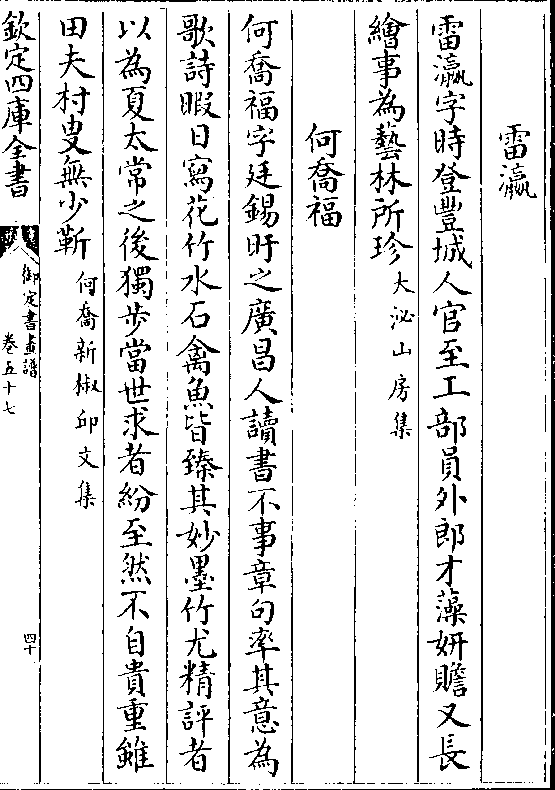 雷瀛
雷瀛字時登豐城人官至工部員外郎才藻妍贍又長
繪事為藝林所珍大泌山房集
何喬福
何喬福字廷錫盱之廣昌人讀書不事章句率其意為
歌詩暇日寫花竹水石禽魚皆臻其妙墨竹尤精評者
以為夏太常之後獨步當世求者紛至然不自貴重雖
田夫村叟無少靳何喬新椒邱文集
欽定四庫全書
御定書畫譜
卷五十七
四十